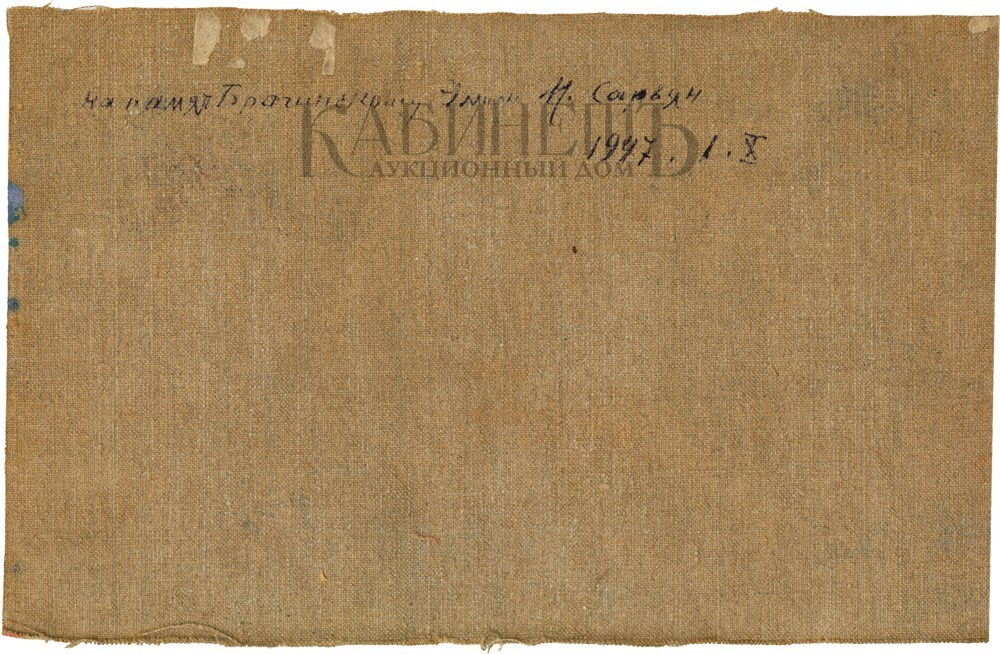 на памят Брагинскому Эмит М. Сарьян
КАБИНЕТЪ
1947. 1. X
АУКЦИОННЫЙ ДОМ